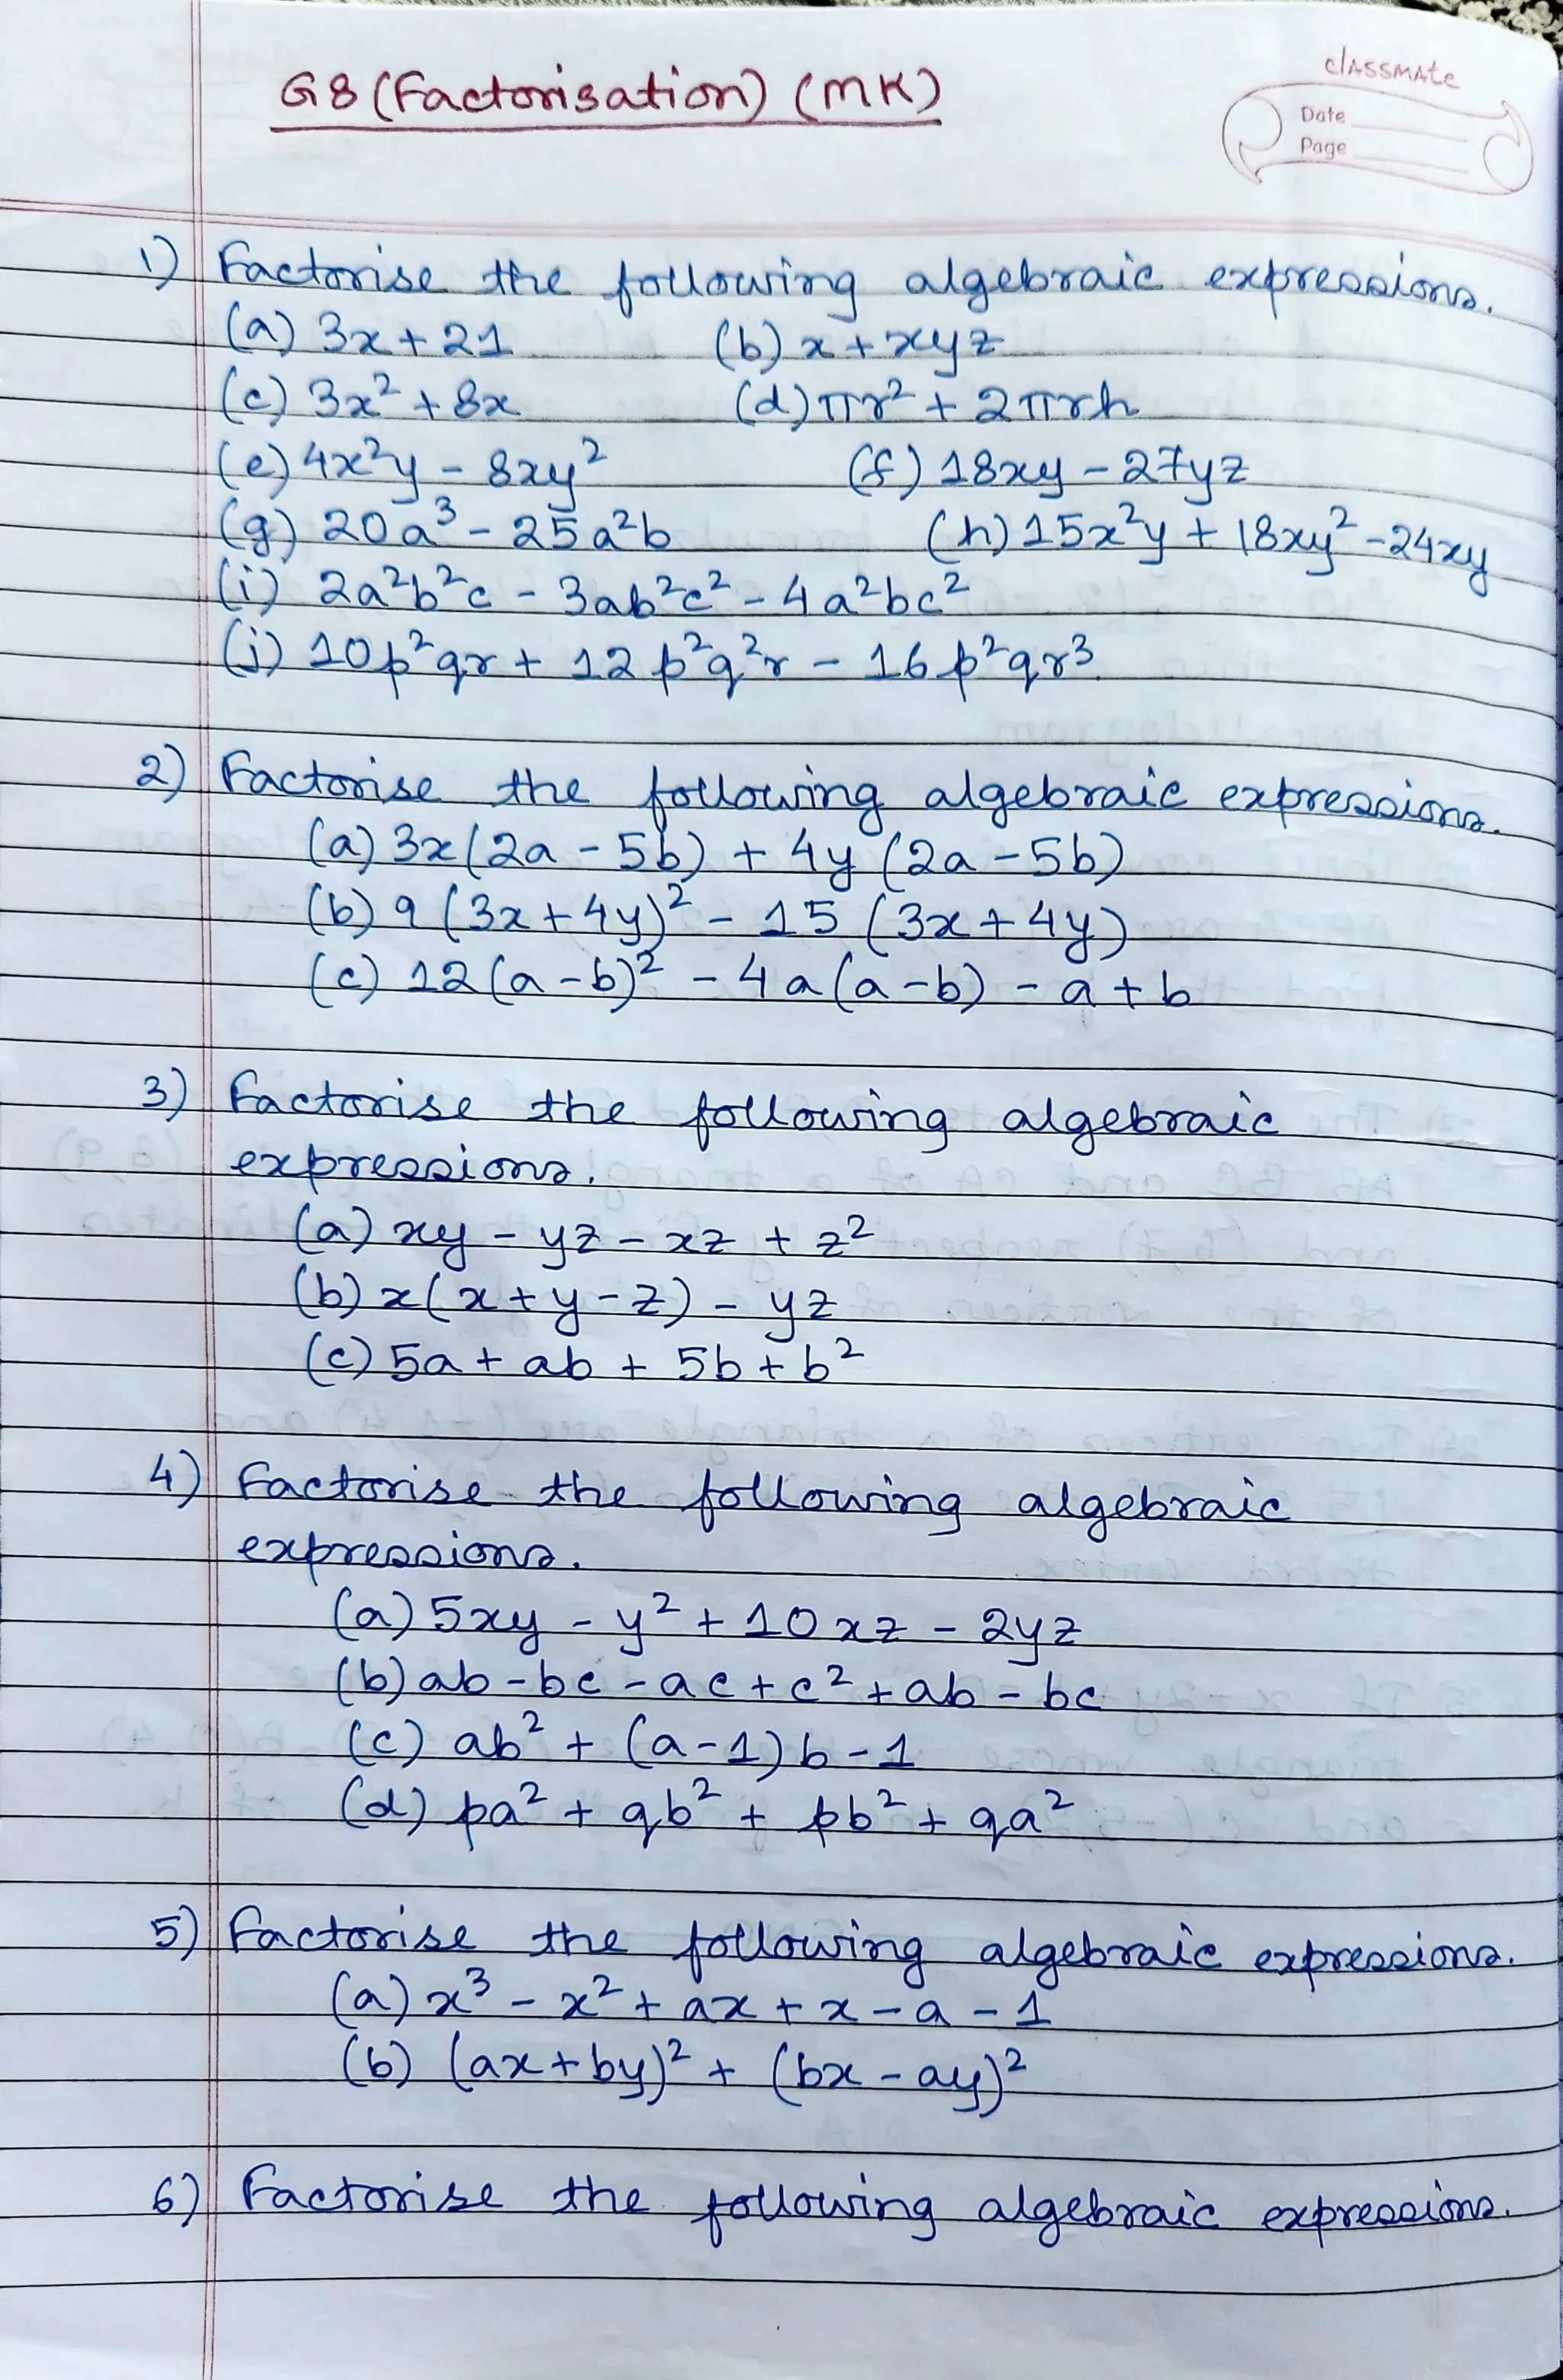 G8 (Factorisation) (MK)
classmate
Date
Page
1) Factorise the following algebraic expressions.
(a) 3x + 21 (b) x + xyz
(c) 3x² + 8x (d) πr² + 2πrh
(e) 4x²y - 8xy² (f) 18xy - 27yz
(g) 20a³ - 25a²b (h) 15x²y + 18xy² - 24xy
(i) 2a²b²c - 3ab²c² - 4a²bc²
(j) 10p²qr + 12p²q²r - 16p²qr³
2) Factorise the following algebraic expressions.
(a) 3x(2a - 5b) + 4y(2a - 5b)
(b) 9(3x + 4y)² - 15(3x + 4y)
(c) 12(a - b)² - 4a(a - b) - a + b
3) Factorise the following algebraic
expressions.
(a) xy - yz - xz + z²
(b) x(x + y - z) - yz
(c) 5a + ab + 5b + b²
4) Factorise the following algebraic
expressions.
(a) 5xy - y² + 10xz - 2yz
(b) ab - bc - ac + c² + ab - bc
(c) ab² + (a - 1)b - 1
(d) pa² + qb² + pb² + qa²
5) Factorise the following algebraic expressions.
(a) x³ - x² + ax + x - a - 1
(b) (ax + by)² + (bx - ay)²
6) Factorise the following algebraic expressions.